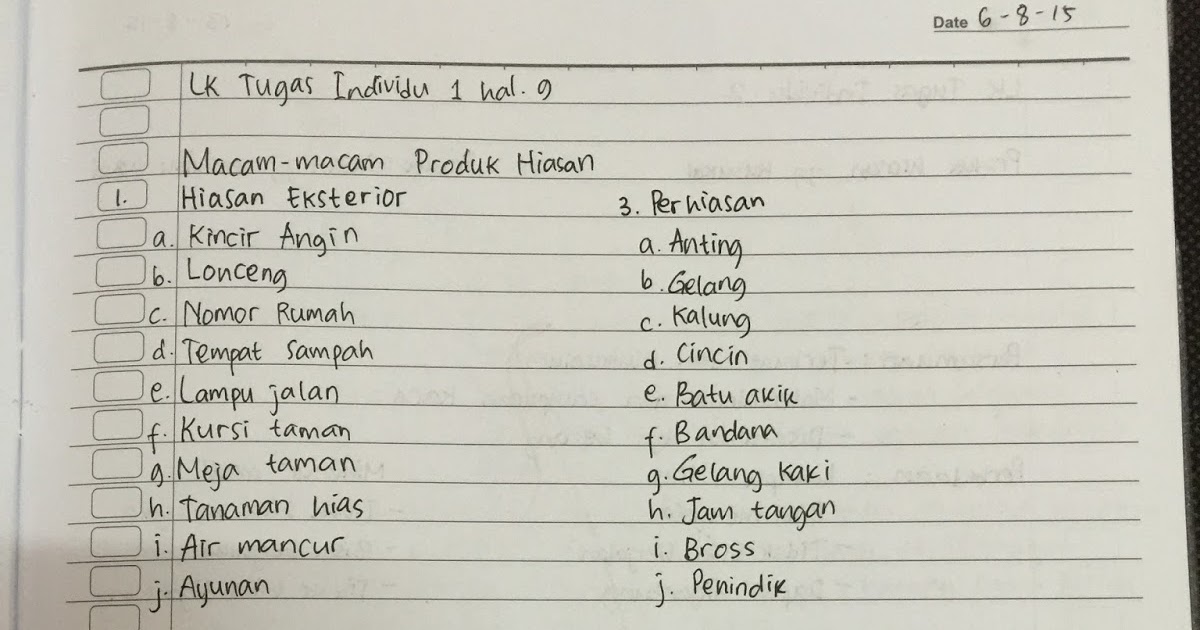 Date 6-8-15
LK Tugas Individu 1 hal. 9
Macam-macam Produk Hiasan
1. Hiasan Eksterior
a. Kincir Angin
b. Lonceng
c. Nomor Rumah
d. Tempat Sampah
e. Lampu jalan
f. Kursi taman
g. Meja taman
h. Tanaman hias
i. Air mancur
j. Ayunan
3. Perhiasan
a. Anting
b. Gelang
c. Kalung
d. Cincin
e. Batu akik
f. Bandana
g. Gelang kaki
h. Jam tangan
i. Bross
j. Penindik